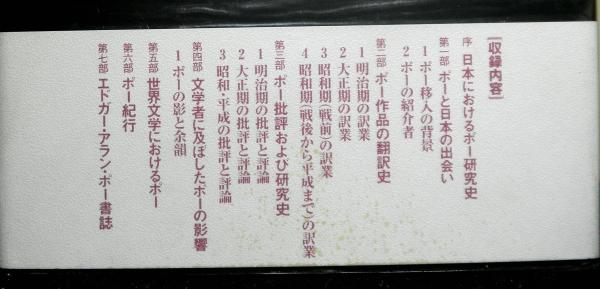 ［収録内容］
序 日本におけるポー研究史
第一部 ポーと日本の出会い
1 ポー移入の背景
2 ポーの紹介者
第二部 ポー作品の翻訳史
1 明治期の訳業
2 大正期の訳業
3 昭和期（戦前）の訳業
4 昭和期（戦後から平成まで）の訳業
第三部 ポー批評および研究史
1 明治期の批評と評論
2 大正期の批評と評論
3 昭和・平成の批評と評論
第四部 文学者に及ぼしたポーの影響
1 ポーの影と余韻
第五部 世界文学におけるポー
第六部 ポー紀行
第七部 エドガー・アラン・ポー書誌